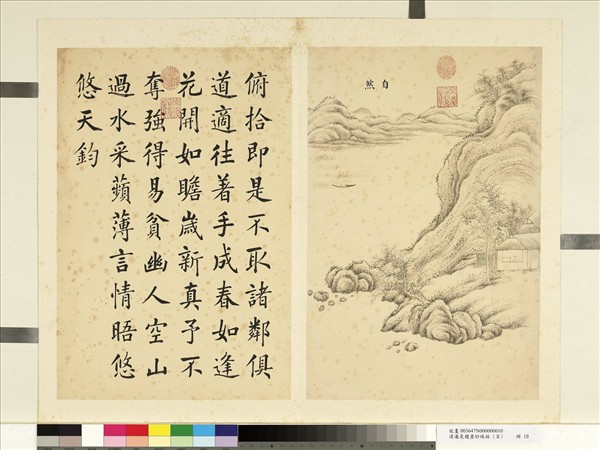 自然
俯拾即是不取諸鄰俱
道適往著手成春如逢
花開如瞻歲新真予不
奪強得易貧幽人空山
過水采蘋薄言情晤悠
悠天鈞
故畫 003647N000000010
墨妙珠林 冊 10